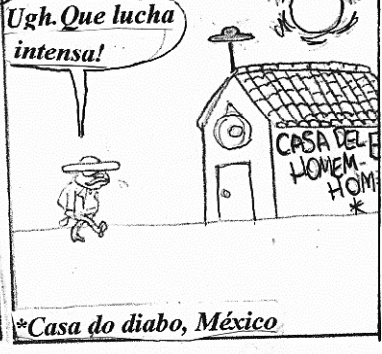 Ugh. Que lucha
intensa!
CASA DEL E
HOMEM-
HOM
*
*Casa do diabo, México